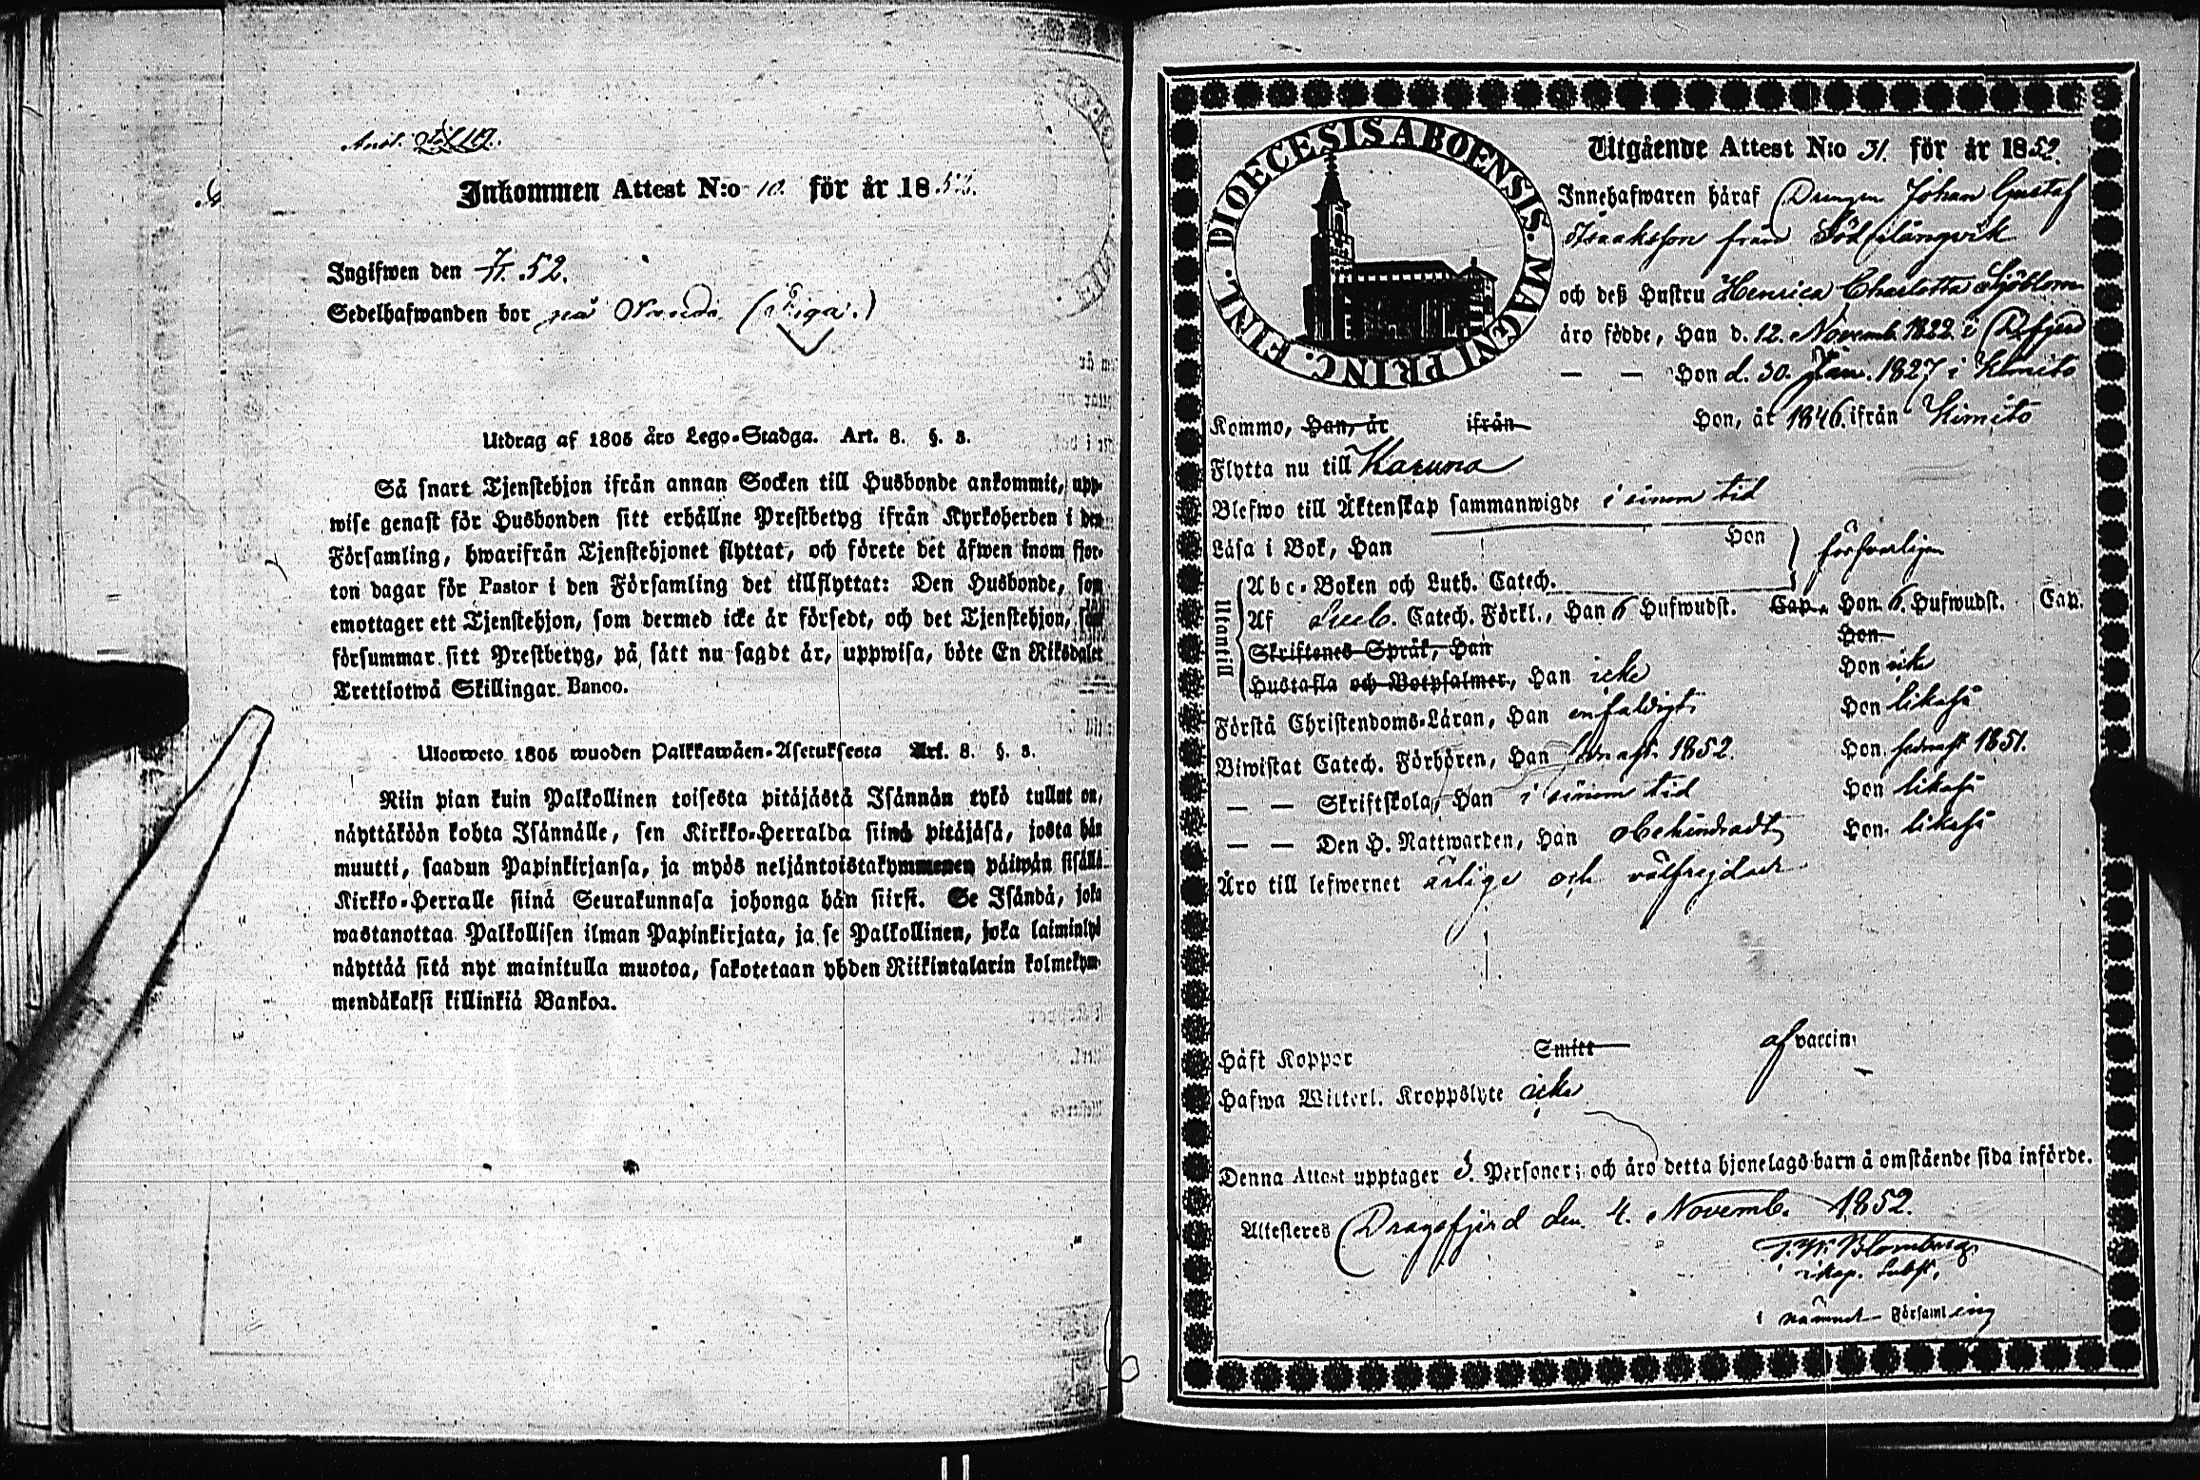 Inkommen Attest N:o 10. för år 1852.
Ingifwen den 7/11. 52.
Sedelhafwanden bor på
Utdrag af 1805 års Lego-Stadga. Art. 8. §. 3.
Så snart Tjenstehjon ifrån annan Socken till Husbonde ankommit, upp-
wise genast för Husbonden sitt erhållne Prestbetyg ifrån Kyrkoherden i den
Församling, hwarifrån Tjenstehjonet flyttat, och förete det äfwen inom fjor-
ton dagar för Pastor i den Församling det tillflyttat: Den Husbonde, som
emottager ett Tjenstehjon, som dermed icke är försedt, och det Tjenstehjon, som
försummar sitt Prestbetyg, på sätt nu sagdt är, uppwisa, böte En Riksdaler
Trettiotwå Skillingar Banco.
Uloosweto 1805 wuoden Palkkawäen-Asetuksesta Art. 8. §. 3.
Niin pian kuin Palkollinen toisesta pitäjästä Isännän tykö tullut on,
näyttäköön kohta Isännälle, sen Kirkko-Herralda siinä pitäjäsä, josta hän
muutti, saadun Papinkirjansa, ja myös neljäntoistakymmenen päiwän sisällä
Kirkko-Herralle siinä Seurakunnasa johonga hän siirsi. Se Isändä, joka
wastanottaa Palkollisen ilman Papinkirjata, ja se Palkollinen, joka laiminlyö
näyttää sitä nyt mainitulla muotoa, sakotetaan yhden Riikintalarin kolmekym-
mendäkaksi killinkiä Bankoa.
DIOECESIS ABOENSIS. MAGNI PRINC. FINL.
Utgående Attest N:o 31. för år 1852.
Innehafwaren häraf Drengen Johan Gustaf
Isaaksson från Södersångvik
och deß Hustru Henrica Charlotta Sjöblom
äro födde, Han d. 12. Novemb. 1822 i Drfjerd
— — Hon d. 30. Jan. 1827 i Kimito
Kommo, Han, år ifrån Hon, år 1846. ifrån Kimito
Flytta nu till Karuna
Blefwo till Äktenskap sammanwigde i sinom tid
Läsa i Bok, Han Hon försvarligen
Utantill
Abc-Boken och Luth. Catech.
Af Sveb. Catech. Förkl., Han 6 Hufwudst. Cap. Hon 6. Hufwudst. Cap.
Skriftenes Språk, Han Hon
Hustafla och Botpsalmer, Han icke Hon icke
Förstå Christendoms-Läran, Han enfaldigt Hon likaså
Biwistat Catech. Förhören, Han sednast 1852. Hon sednast 1851.
— — Skriftskola, Han i sinom tid Hon likaså
— — Den H. Nattwarden, Han obehindradt Hon likaså
Äro till lefwernet ärlige och välfrejdade
Haft Koppor Smitt af vaccin.
Hafwa Witterl. Kroppslyte icke
Denna Attest upptager 3. Personer; och äro detta hjonelags barn å omstående sida införde.
Attesteres Dragsfjerd den 4. Novemb. 1852.
Blomberg
Kap. Subst.
i nämnd Församling